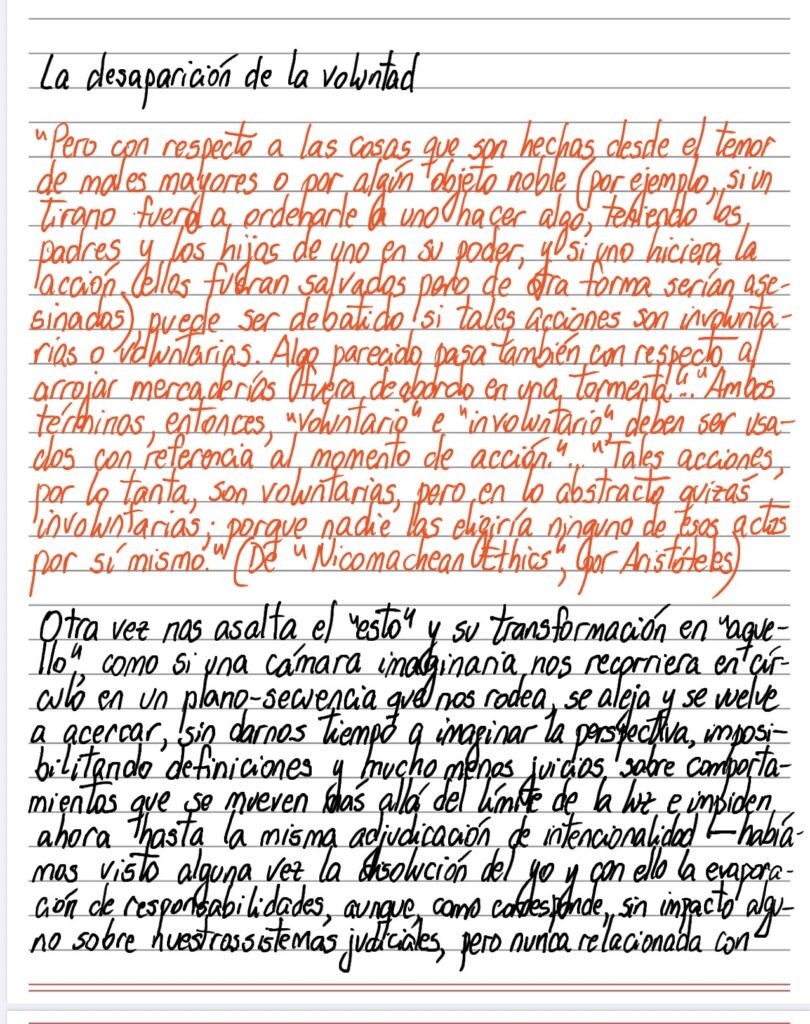 La desaparición de la voluntad
"Pero con respecto a las cosas que son hechas desde el temor
de males mayores o por algún objeto noble (por ejemplo, si un
tirano fuera a ordenarle a uno hacer algo, teniendo los
padres y los hijos de uno en su poder, y si uno hiciera la
acción ellos fueran salvados pero de otra forma serían ase-
sinados), puede ser debatido si tales acciones son involunta-
rias o voluntarias. Algo parecido pasa también con respecto al
arrojar mercaderías fuera de abordo en una tormenta"..."Ambos
términos, entonces, "voluntario" e "involuntario" deben ser usa-
dos con referencia al momento de acción."..."Tales acciones,
por lo tanto, son voluntarias, pero en lo abstracto quizás
involuntarias; porque nadie las eligiría ninguno de esos actos
por sí mismo." (De "Nicomachean Ethics", por Aristóteles)
Otra vez nos asalta el "esto" y su transformación en "aque-
llo", como si una cámara imaginaria nos recorriera en cír-
culo en un plano-secuencia que nos rodea, se aleja y se vuelve
a acercar, sin darnos tiempo a imaginar la perspectiva, imposi-
bilitando definiciones y mucho menos juicios sobre comporta-
mientos que se mueven más allá del límite de la luz e impiden
ahora hasta la misma adjudicación de intencionalidad —había-
mos visto alguna vez la disolución del yo y con ello la evapora-
ción de responsabilidades, aunque, como corresponde, sin impacto algu-
no sobre nuestros sistemas judiciales, pero nunca relacionada con